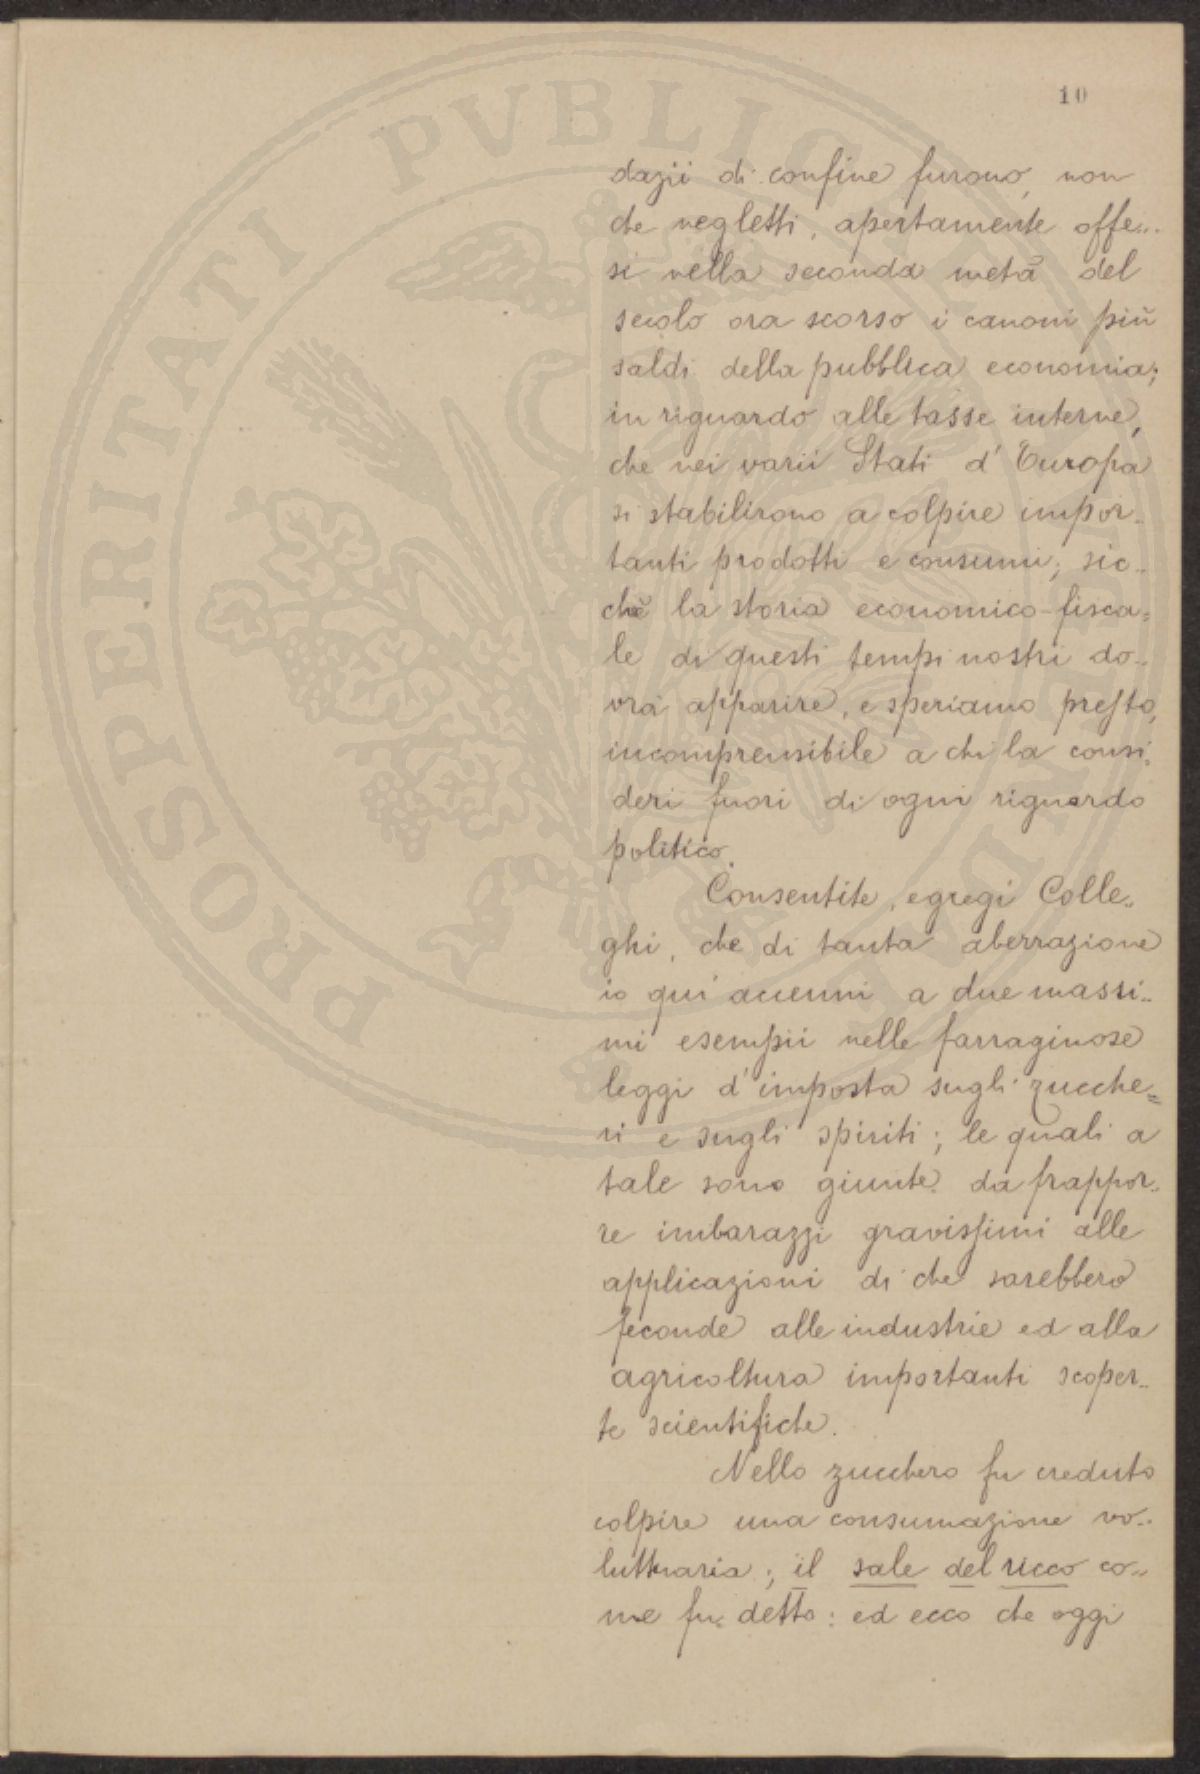 10
dazii di confine furono, non
che negletti, apertamente offe..
si nella seconda metà del
secolo ora scorso i canoni più
saldi della pubblica economia;
in riguardo alle tasse interne,
che nei varii Stati d'Europa
si stabilirono a colpire impor..
tanti prodotti e consumi; sic..
chè la storia economico-fisca=
le di questi tempi nostri do..
vrà apparire, e speriamo presto,
incomprensibile a chi la consi..
deri fuori di ogni riguardo
politico.
Consentite, egregi Colle..
ghi, che di tanta aberrazione
io qui accenni a due massi..
mi esempii nelle farraginose
leggi d'imposta sugli zucche=
ri e sugli spiriti; le quali a
tale sono giunte da frappor..
re imbarazzi gravissimi alle
applicazioni di che sarebbero
feconde alle industrie ed alla
agricoltura importanti scoper..
te scientifiche.
Nello zucchero fu creduto
colpire una consumazione vo..
luttuaria; il sale del ricco co..
me fu detto: ed ecco che oggi
PROSPERITATI PVBLICE